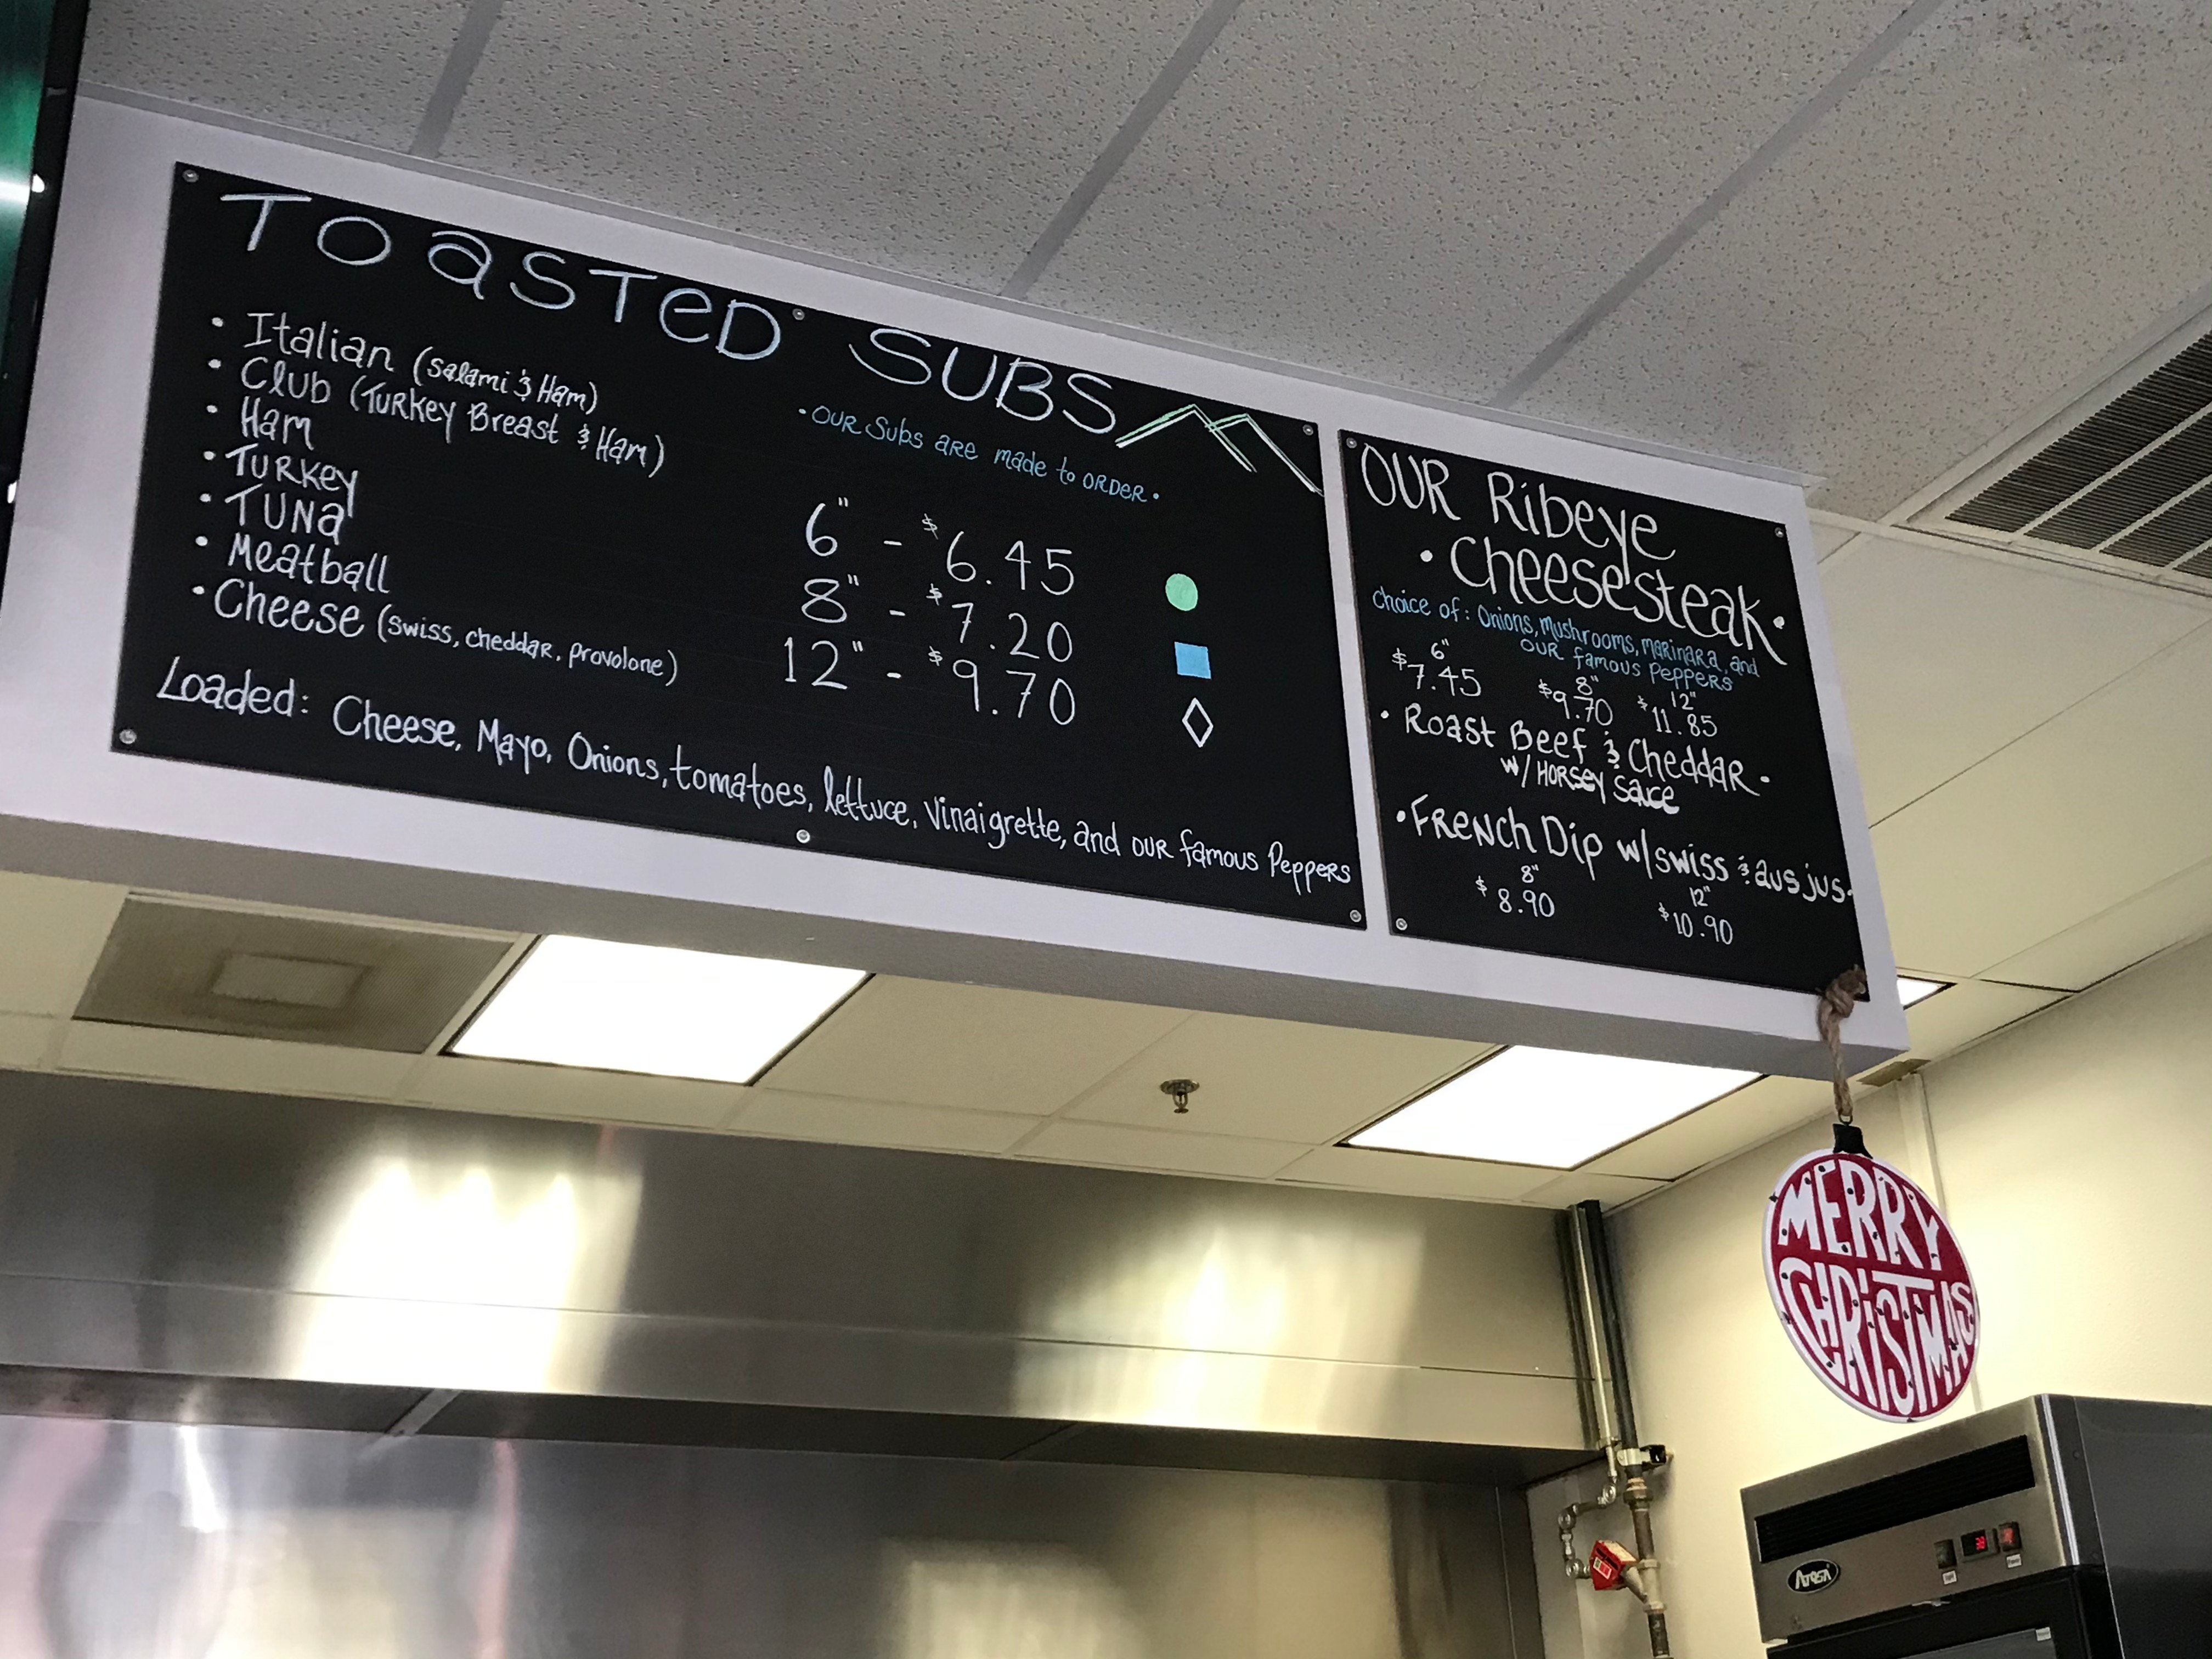 TOASTED SUBS
• Italian (Salami & Ham)
• Club (Turkey Breast & Ham)
• Ham
• Turkey
• Tuna
• Meatball
• Cheese (swiss, cheddar, provolone)
• Our Subs are made to order •
6" - $6.45
8" - $7.20
12" - $9.70
Loaded: Cheese, Mayo, Onions, tomatoes, lettuce, Vinaigrette, and our famous Peppers
Our Ribeye
• Cheesesteak •
Choice of: Onions, Mushrooms, marinara, and
our famous Peppers
6" 8" 12"
$7.45 $9.70 $11.85
• Roast Beef & Cheddar •
w/ Horsey Sauce
• French Dip w/ swiss & aus jus •
8" 12"
$8.90 $10.90
MERRY
CHRISTMAS
Atosa
38